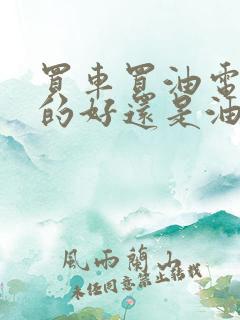 買車買油電
的好還是油
風雨蘭山
未經同意禁止轉載